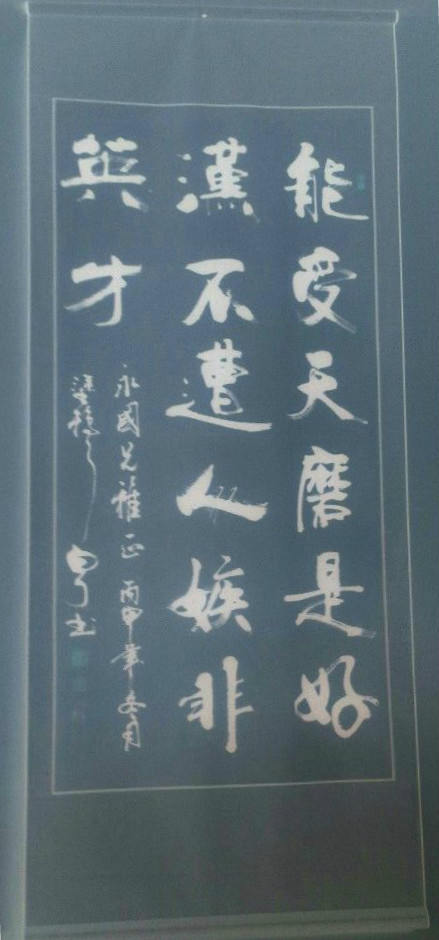 能受天磨是好
漢不遭人嫉非
英才
永國兄雅正 丙申年冬月
書